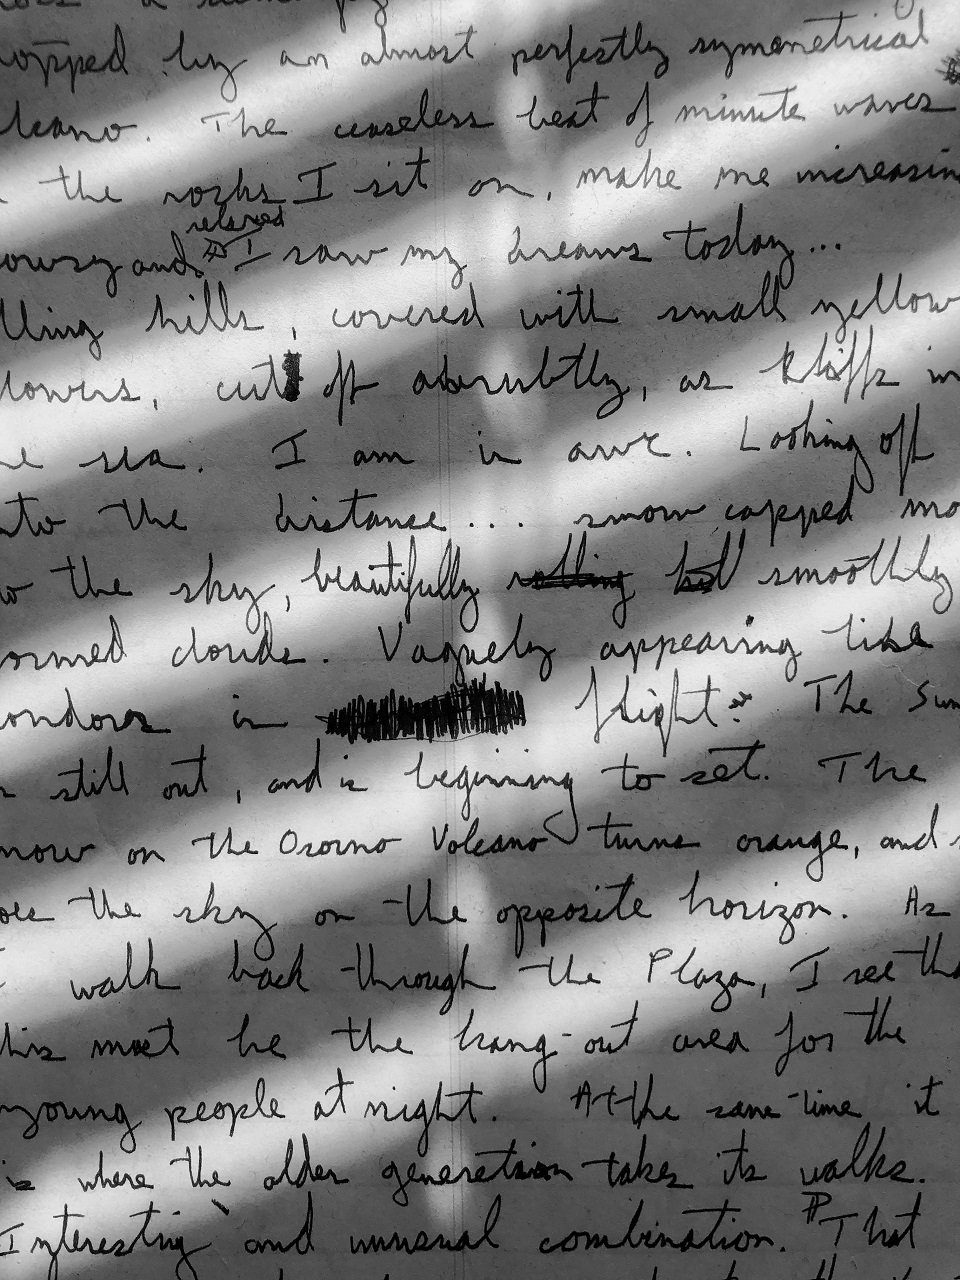 opped by an almost perfectly symmetrical
lcano. The ceaseless beat of minute waves
the rocks I sit on, make me increasin
relaxed
owsy and I saw my dreams today...
lling hills, covered with small yellow
lowers, cut off abrubtly, as kliffs in
he sea. I am in awe. Looking off
nto the distance.... snow capped mo
w the sky, beautifully rolling smoothly
ormed clouds. Vaguely appearing like
ondors in flight. The Sun
still out, and is beginning to set. The
now on the Osorno Volcano turns orange, and
oes the sky on the opposite horizon. As
I walk back through the Plaza, I see tha
his must be the hang-out area for the
young people at night. At the same-time it
is where the older generation takes its walks.
Interesting and unusual combination. That